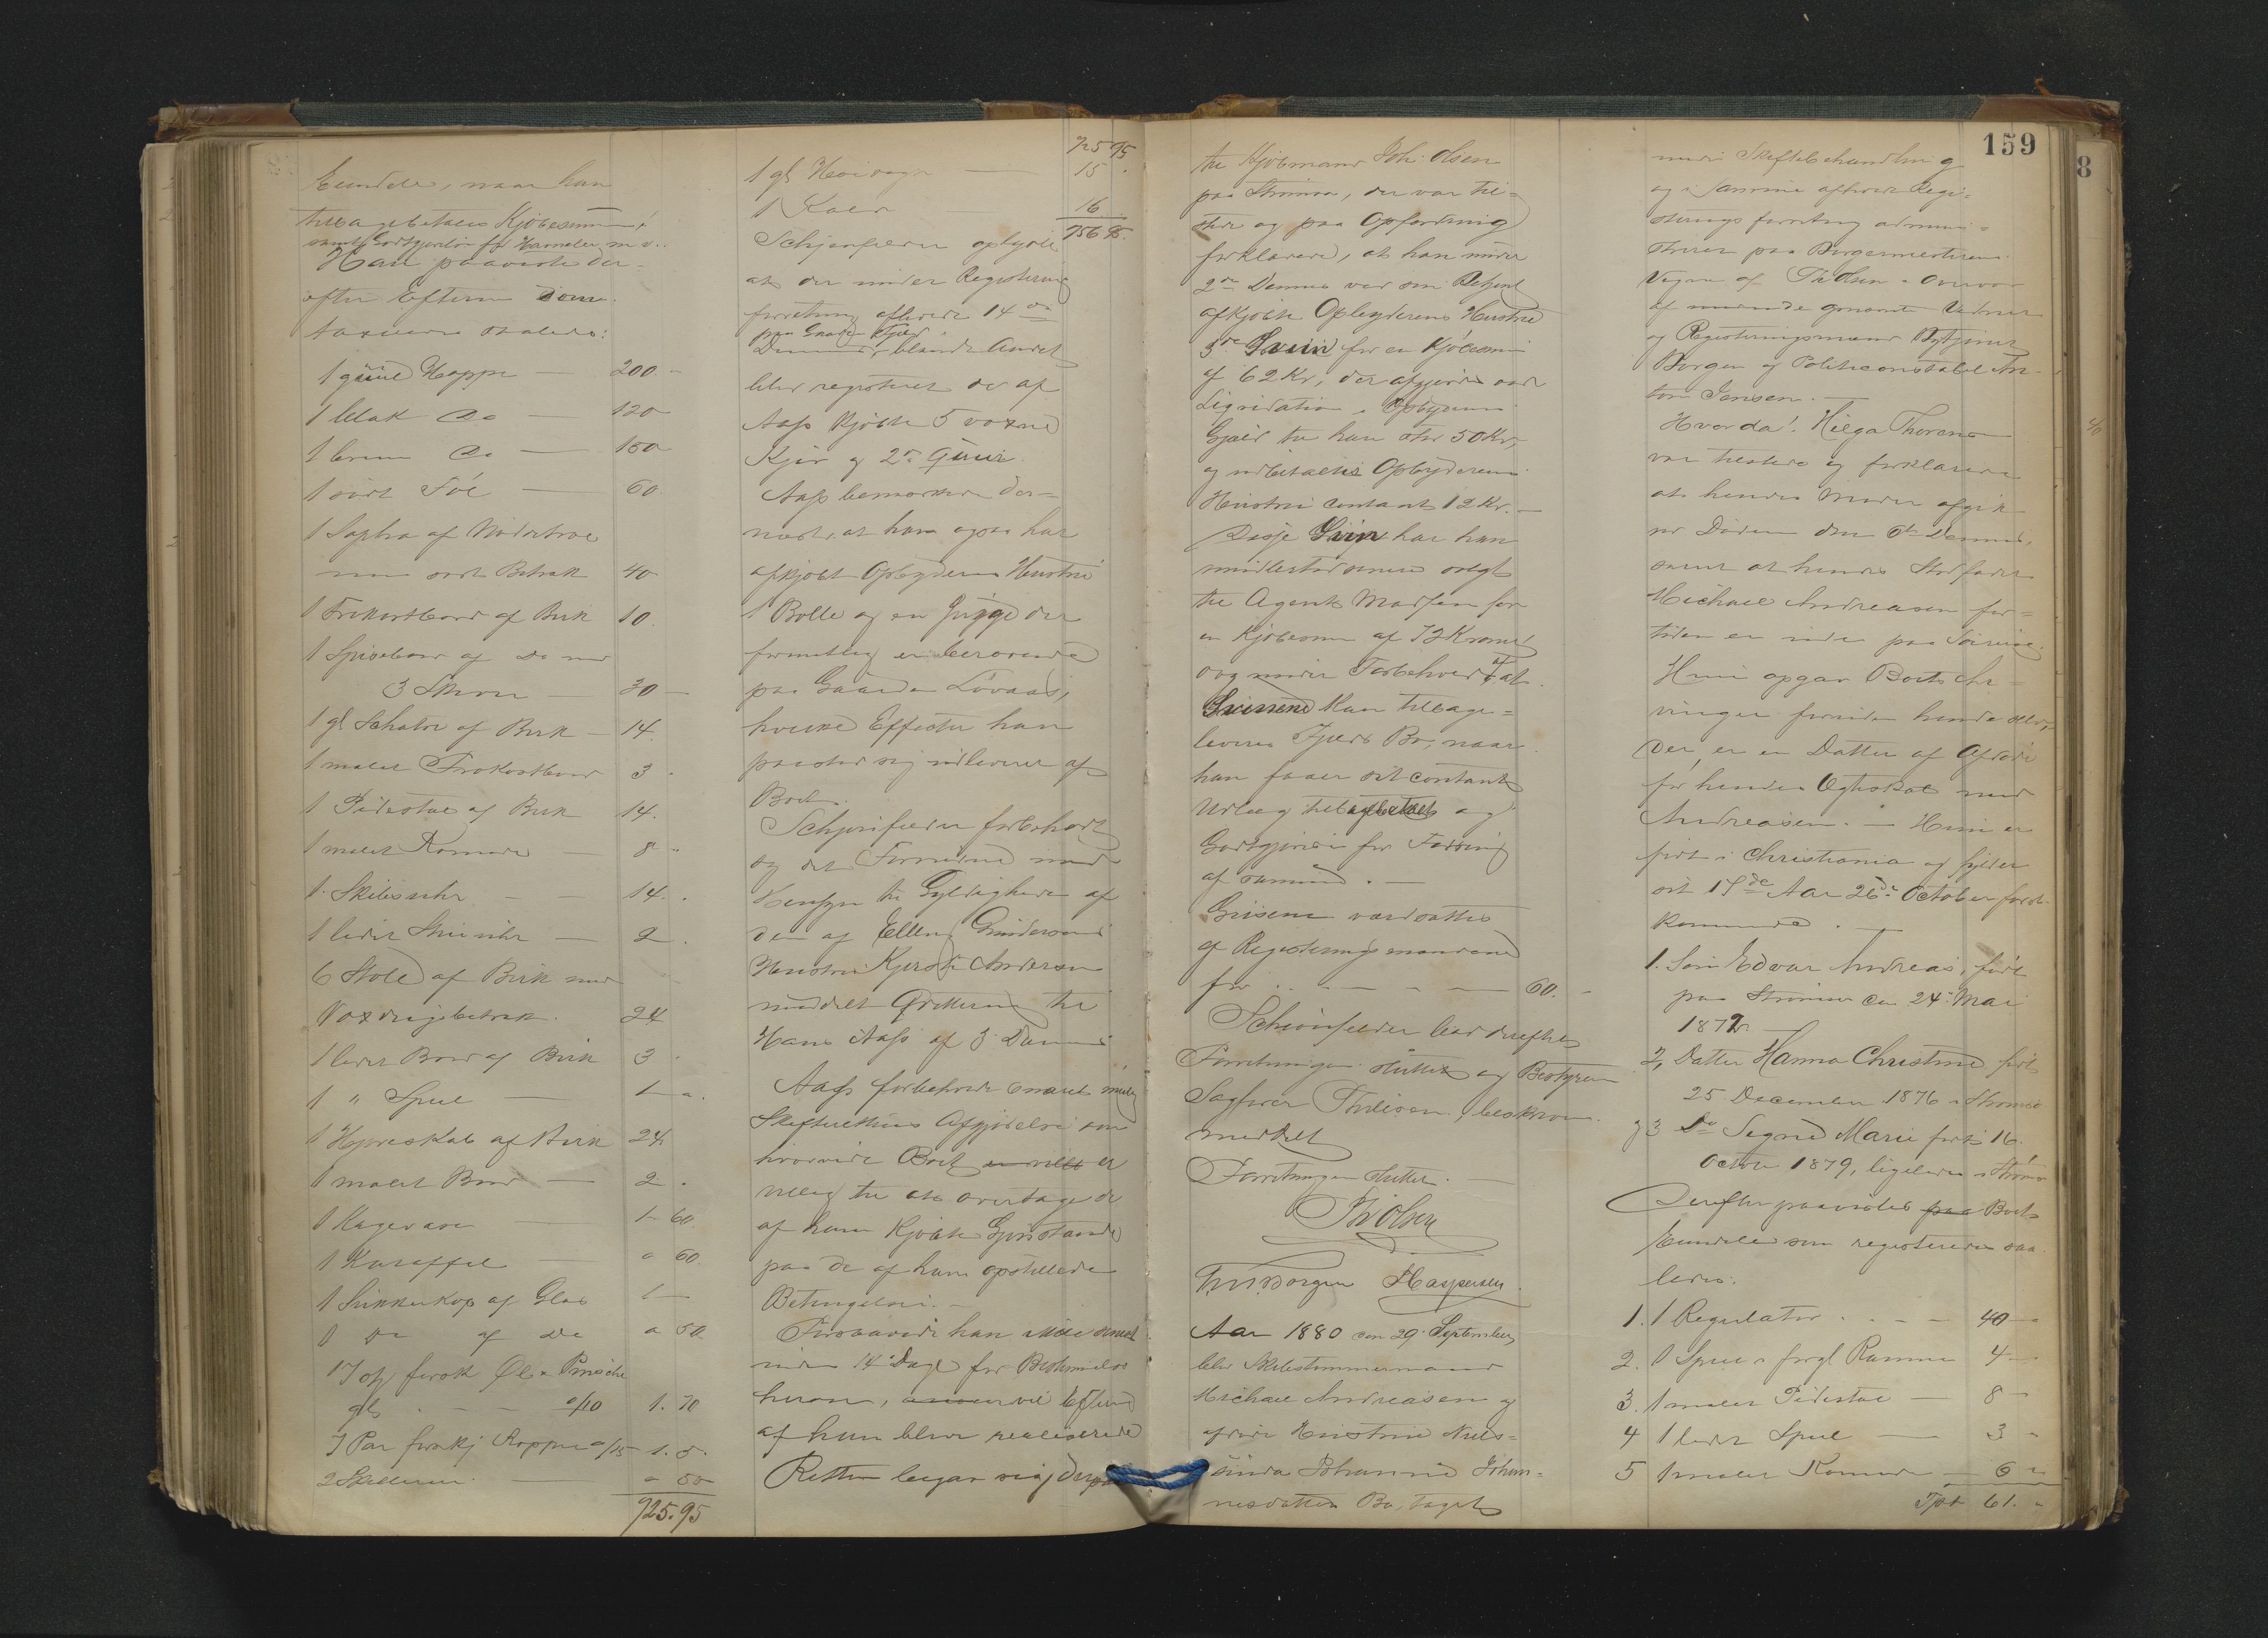 Eiendele, naar han
tilbagebetaler Kjøbesummen,
samt Godtgjørelse for Havneleie m. v.
Han paaviste der-
efter Eftern
taxeredes saaledes:
1 guul Hoppe — 200 -
1 blak do — 120
1 brun do — 150
1 sort Føl — 60.
1 Sopha af
med sort Betræk 40
1 Frokostbord af Birk 10.
1 Spisebord af do med
3 Skuve — 30 —
1 gl Schatol af Birk — 14.
1 malet Frokostbord 3 -
1 Pidestal af Birk 14.
1 malet Komode — 8 "
1 Skilleriuhr — 14. -
1 lidet — 2.
6 Stole af Birk med
Voxdugsbetræk. 24
1 lidet Bord af Birk 3 -
1 " Speil — 1 - ".
1 Hjørneskab af Birk 24
1 malet Bord — 2 .
1 Kagevase — 1 - 60.
1 Karaffel — " 60.
1 Sukkerkop af Glas 1 —
1 do af do " 50.
17 forsk Øl & Punsche
gls - - - a/10 1. 70
7 Par forskj Kopper a/15 1. 5.
2 Skilderier — " 50
925.95
925 95
1 gl Høivogn — 15 .
1 Kalv 16
956 95.
Schjenfelder oplyste
at der under Registrerings
forretning afholdt 14de
paa
Dennes, blandt Andet
blev registreret de af
Aass kjøbte 5 voxne
Kjør og 2de
Aass bemærkede der-
næst, at han ogsaa har
afkjøbt Opbyderens Hustru
1 Bolle og en der
formentlig er beroende
paa Gaarden Løvaas,
hvilke Effecter han
paastod sig udleveret af
Boet.
Schjenfelder forbeholdt
og det Fornødne med
Hensyn til Gyldigheden af
den af Ellen Gundersens
Hustru Kjersti Andersen
meddelt Qvittering til
Hans Aass af 3 Dennes
Aass forbeholdt snarest mulig
Skifterettens Afgjørelse om
hvorvidt Boet er
villig til at overtage de
af ham kjøbte Gjenstande
paa de af ham opstillede
Betingelser. —
Forsaavidt han ikke senest
inden 14 Dage faar Bestemmelse
herom, vil Effecterne
af ham blive realiserede
Retten begav sig derpaa
til Kjøbmand Joh. Olsen
paa Strømsø, der var til-
stede og paa Opfordring
forklarede, at han under
2den Dennes var som
afkjøbte Opbyderens Hustru
3de Sviin for en Kjøbesum
af 62 Kr, der afgjordes ved
Liqvidation i Opbyderens
Gjæld til ham stor 50 Kr,
og udbetaltes Opbyderens
Hustru contant 12 Kr. —
Disse Sviin har han
imidlertid senere solgt
til Agent Madsen for
en Kjøbesum af 72 Kroner
dog under Forbehold af at
Sviinene kan tilbage-
leveres Fjeres Bo, naar
han faaer sit contante
Udlæg tilbagebetalt og
Godtgjørelse for Fodring
af samme. —
Grisene værdsattes
af Registreringsmændene
for - - — - — 60. -
Schjønfelder lod derefter
Forretningen slutte og Bestyreren
Sagfører Thiisen, beskreven
meddelt
Forretningen sluttet. —
Th Olsen
Th. M. Borgen H Caspersen.
Aar 1880 den 29. September,
blev Skibstømmermand
Michael Andreasen og
afdøde Hustru Niels-
sinda Johanne Johan-
nesdatters Bo, taget
159
8
under Skiftebehandling
og i samme afholdt Regi-
strerings forretning admini-
streret paa Borgermesterens
Vegne af Th Olsen i Overvær
af undertegnede Vidner
og Registreringsmænd
Borgen og Politiconstabel An-
ton Jansen. —
Hvorda! Helga Thoresen
var tilstede og forklarede
at hendes Moder afgik
ved Døden den 6te Dennes,
samt at hendes Stedfader
Michael Andreasen for-
tiden er ude paa Søreise.
Hun opgav Boets Ar-
vinger foruden hende selv,
der, er en Datter af Afdøde
før hendes Ægteskab med
Andreasen. — Hun er
født i Christiania og fylder
sit 17de Aar 26de October først-
kommende. —
1. Søn Edvar Andreas, født
paa Strømsø den 24 Mai
1872. —
2, Datter Hanna Christine født
25 December 1876 i Strømsø
og 3 Do Signe Marie født 16.
October 1879, ligeledes i Strømsø
Derefter paavistes paa Boets
Eiendele som registreredes saa-
ledes:
1. 1 Regulator . - - — 40 —
2. 1 Speil i forgl Ramme 4 —
3. 1 malet Pidestal — 8 —
4 1 lidet Speil — 3 "
5 1 malet Komode — 6 "
Tpt 61. "